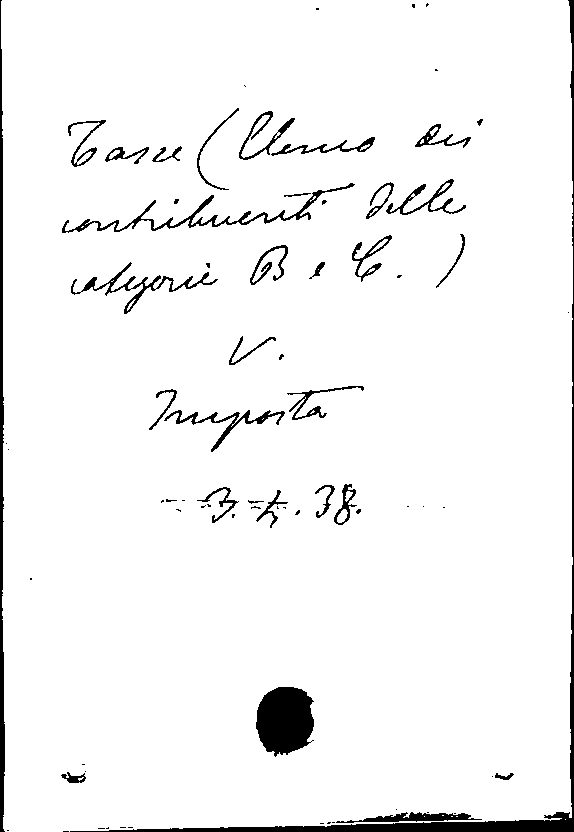 Tasse (Elenco dei
contribuenti delle
categorie B e C.)
V.
Imposta
3.4.38.